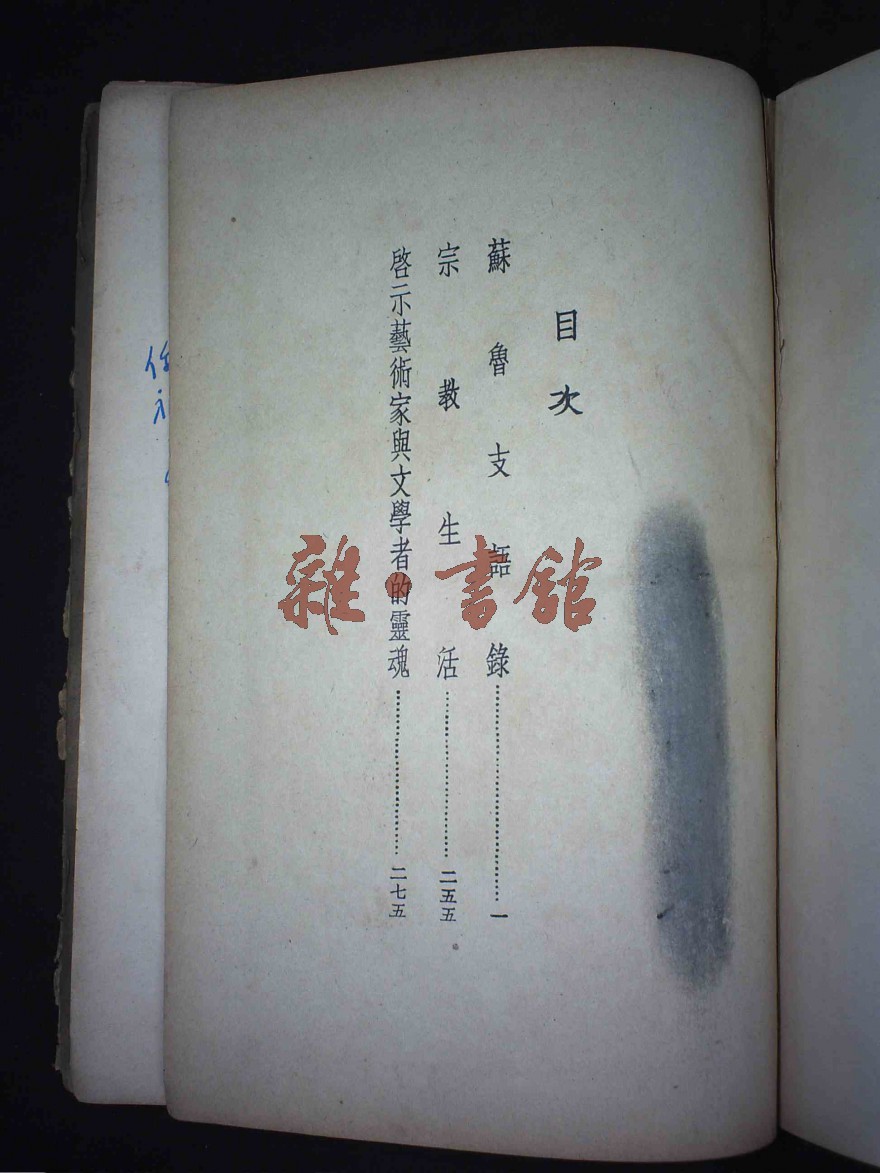 目次
蘇魯支語錄……………………一
宗教生活……………………二五五
啓示藝術家與文學者的靈魂……………………二七五
雜·書館